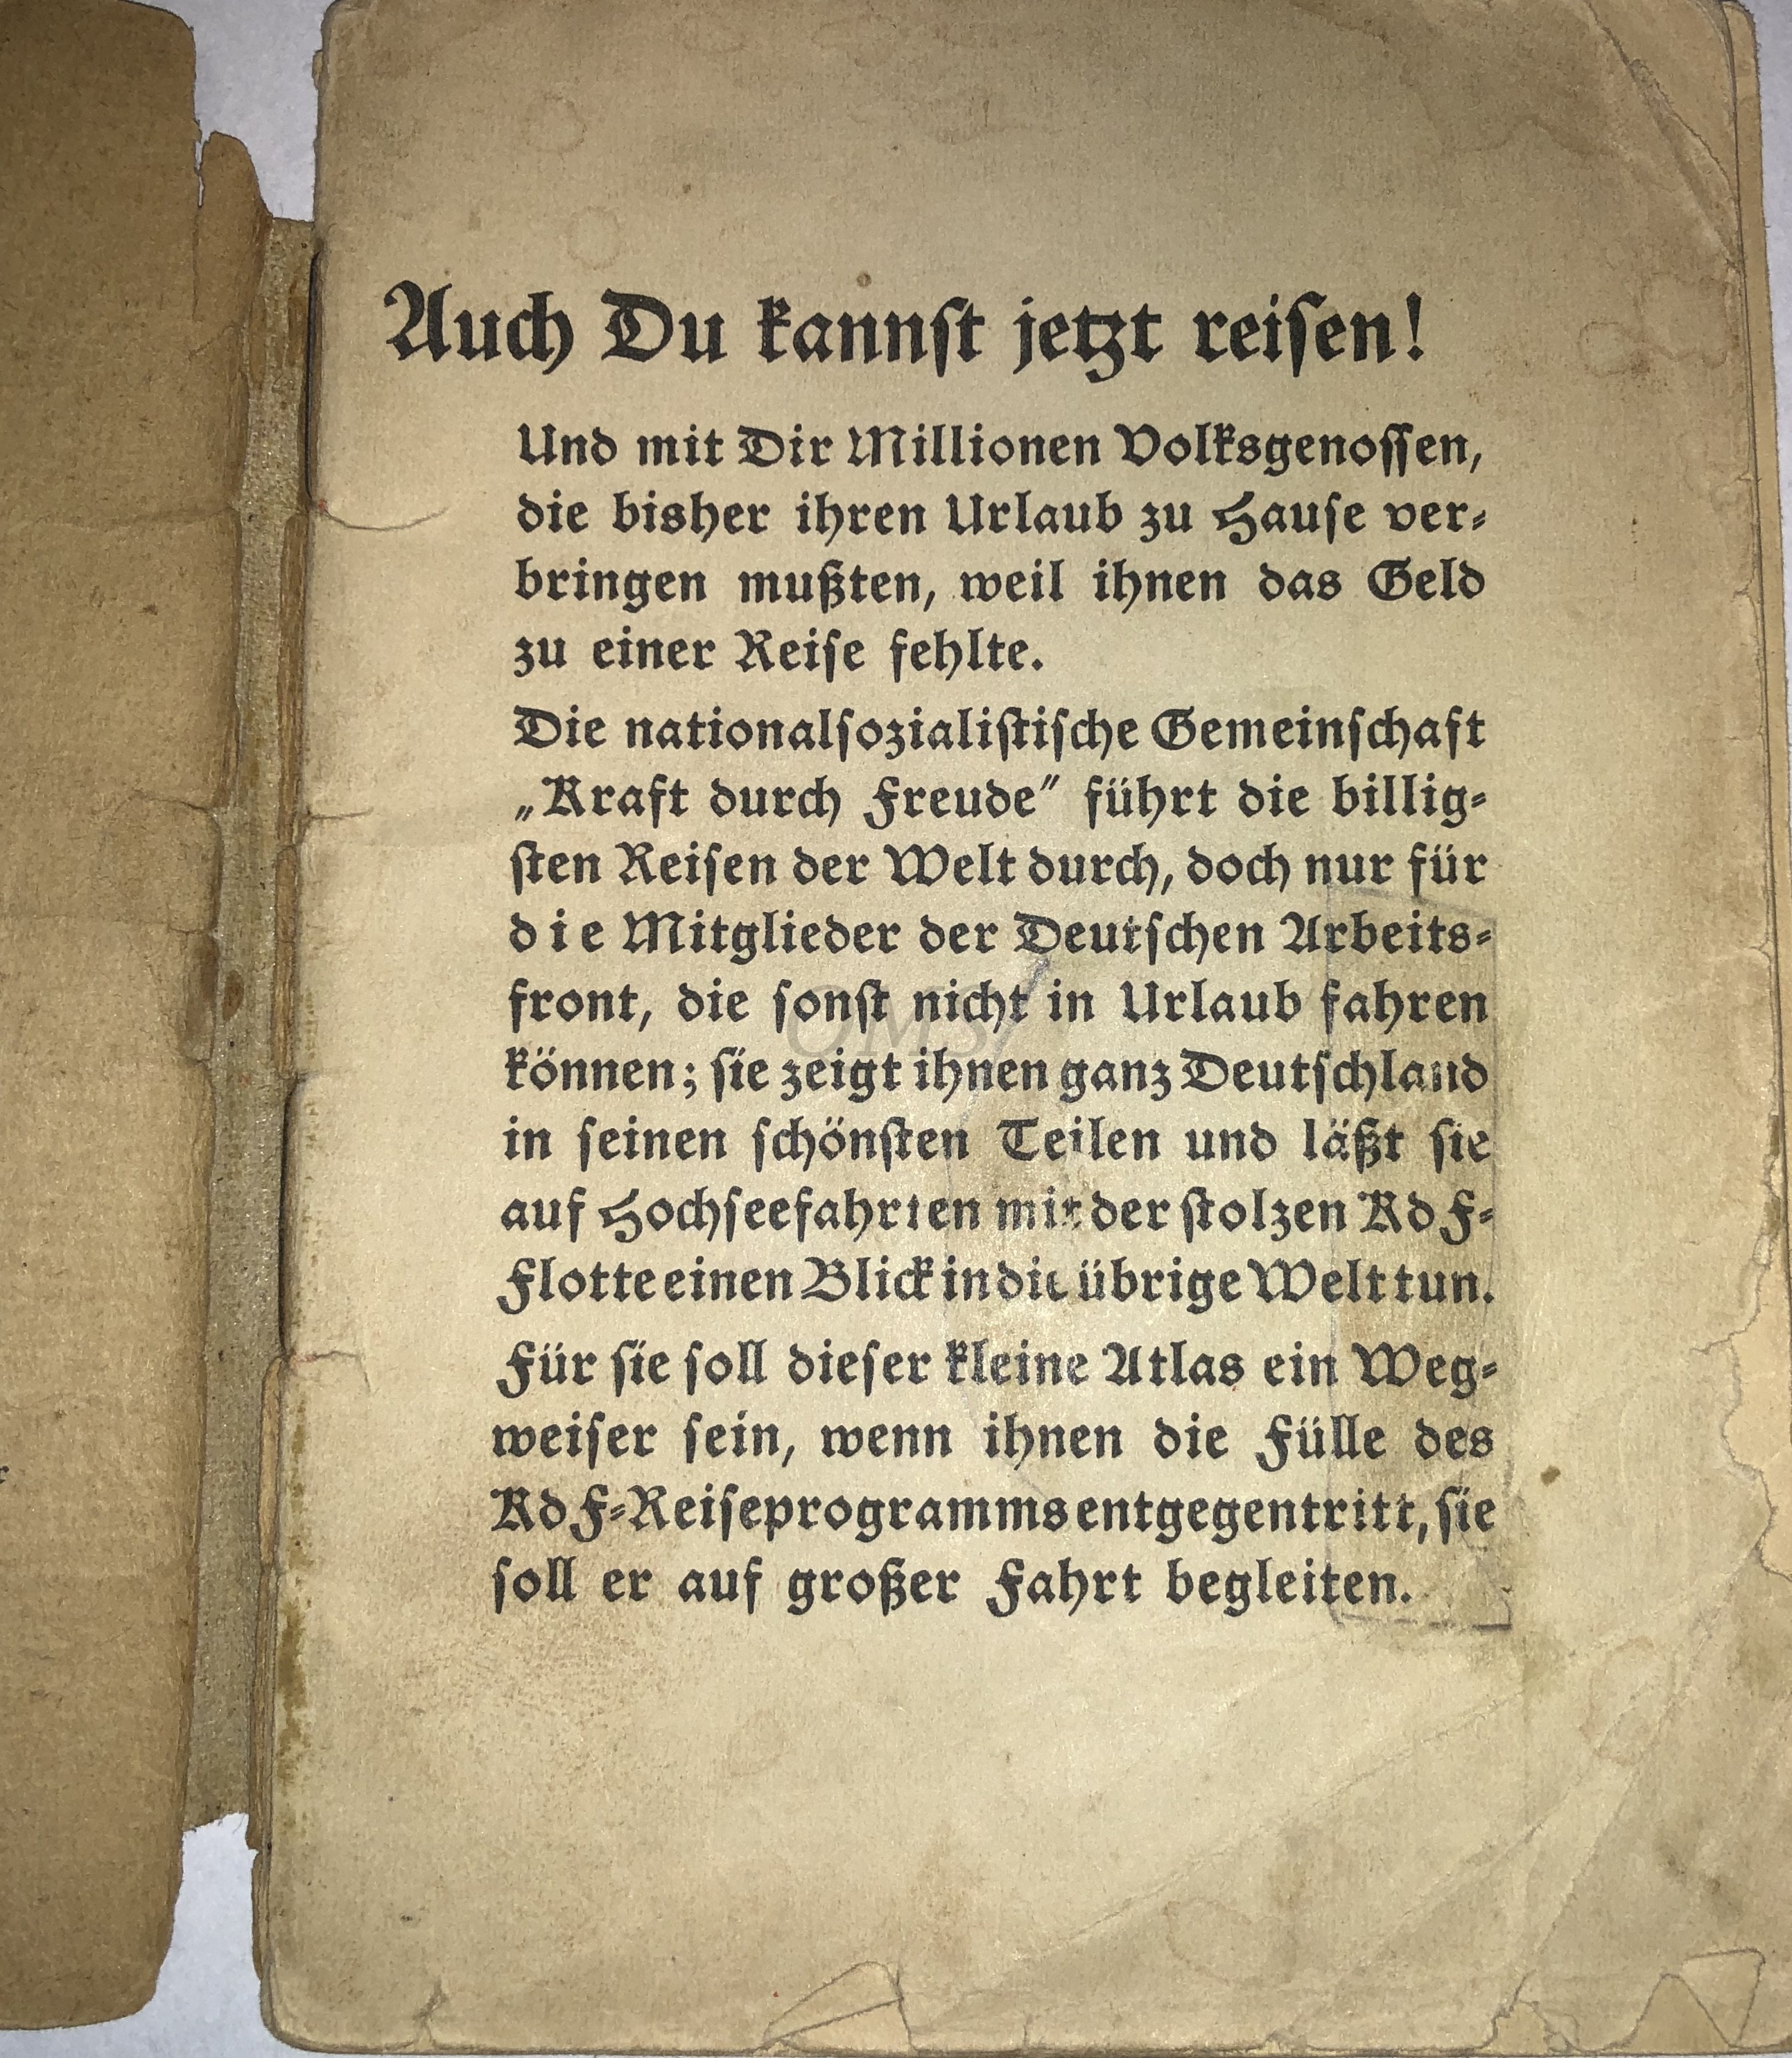 Auch Du kannst jetzt reisen!
Und mit Dir Millionen Volksgenossen,
die bisher ihren Urlaub zu Hause ver-
bringen mußten, weil ihnen das Geld
zu einer Reise fehlte.
Die nationalsozialistische Gemeinschaft
„Kraft durch Freude" führt die billig-
sten Reisen der Welt durch, doch nur für
die Mitglieder der Deutschen Arbeits-
front, die sonst nicht in Urlaub fahren
können; sie zeigt ihnen ganz Deutschland
in seinen schönsten Teilen und läßt sie
auf Hochseefahrten mit der stolzen KdF-
Flotte einen Blick in die übrige Welt tun.
Für sie soll dieser kleine Atlas ein Weg-
weiser sein, wenn ihnen die Fülle des
KdF-Reiseprogramms entgegentritt, sie
soll er auf großer Fahrt begleiten.